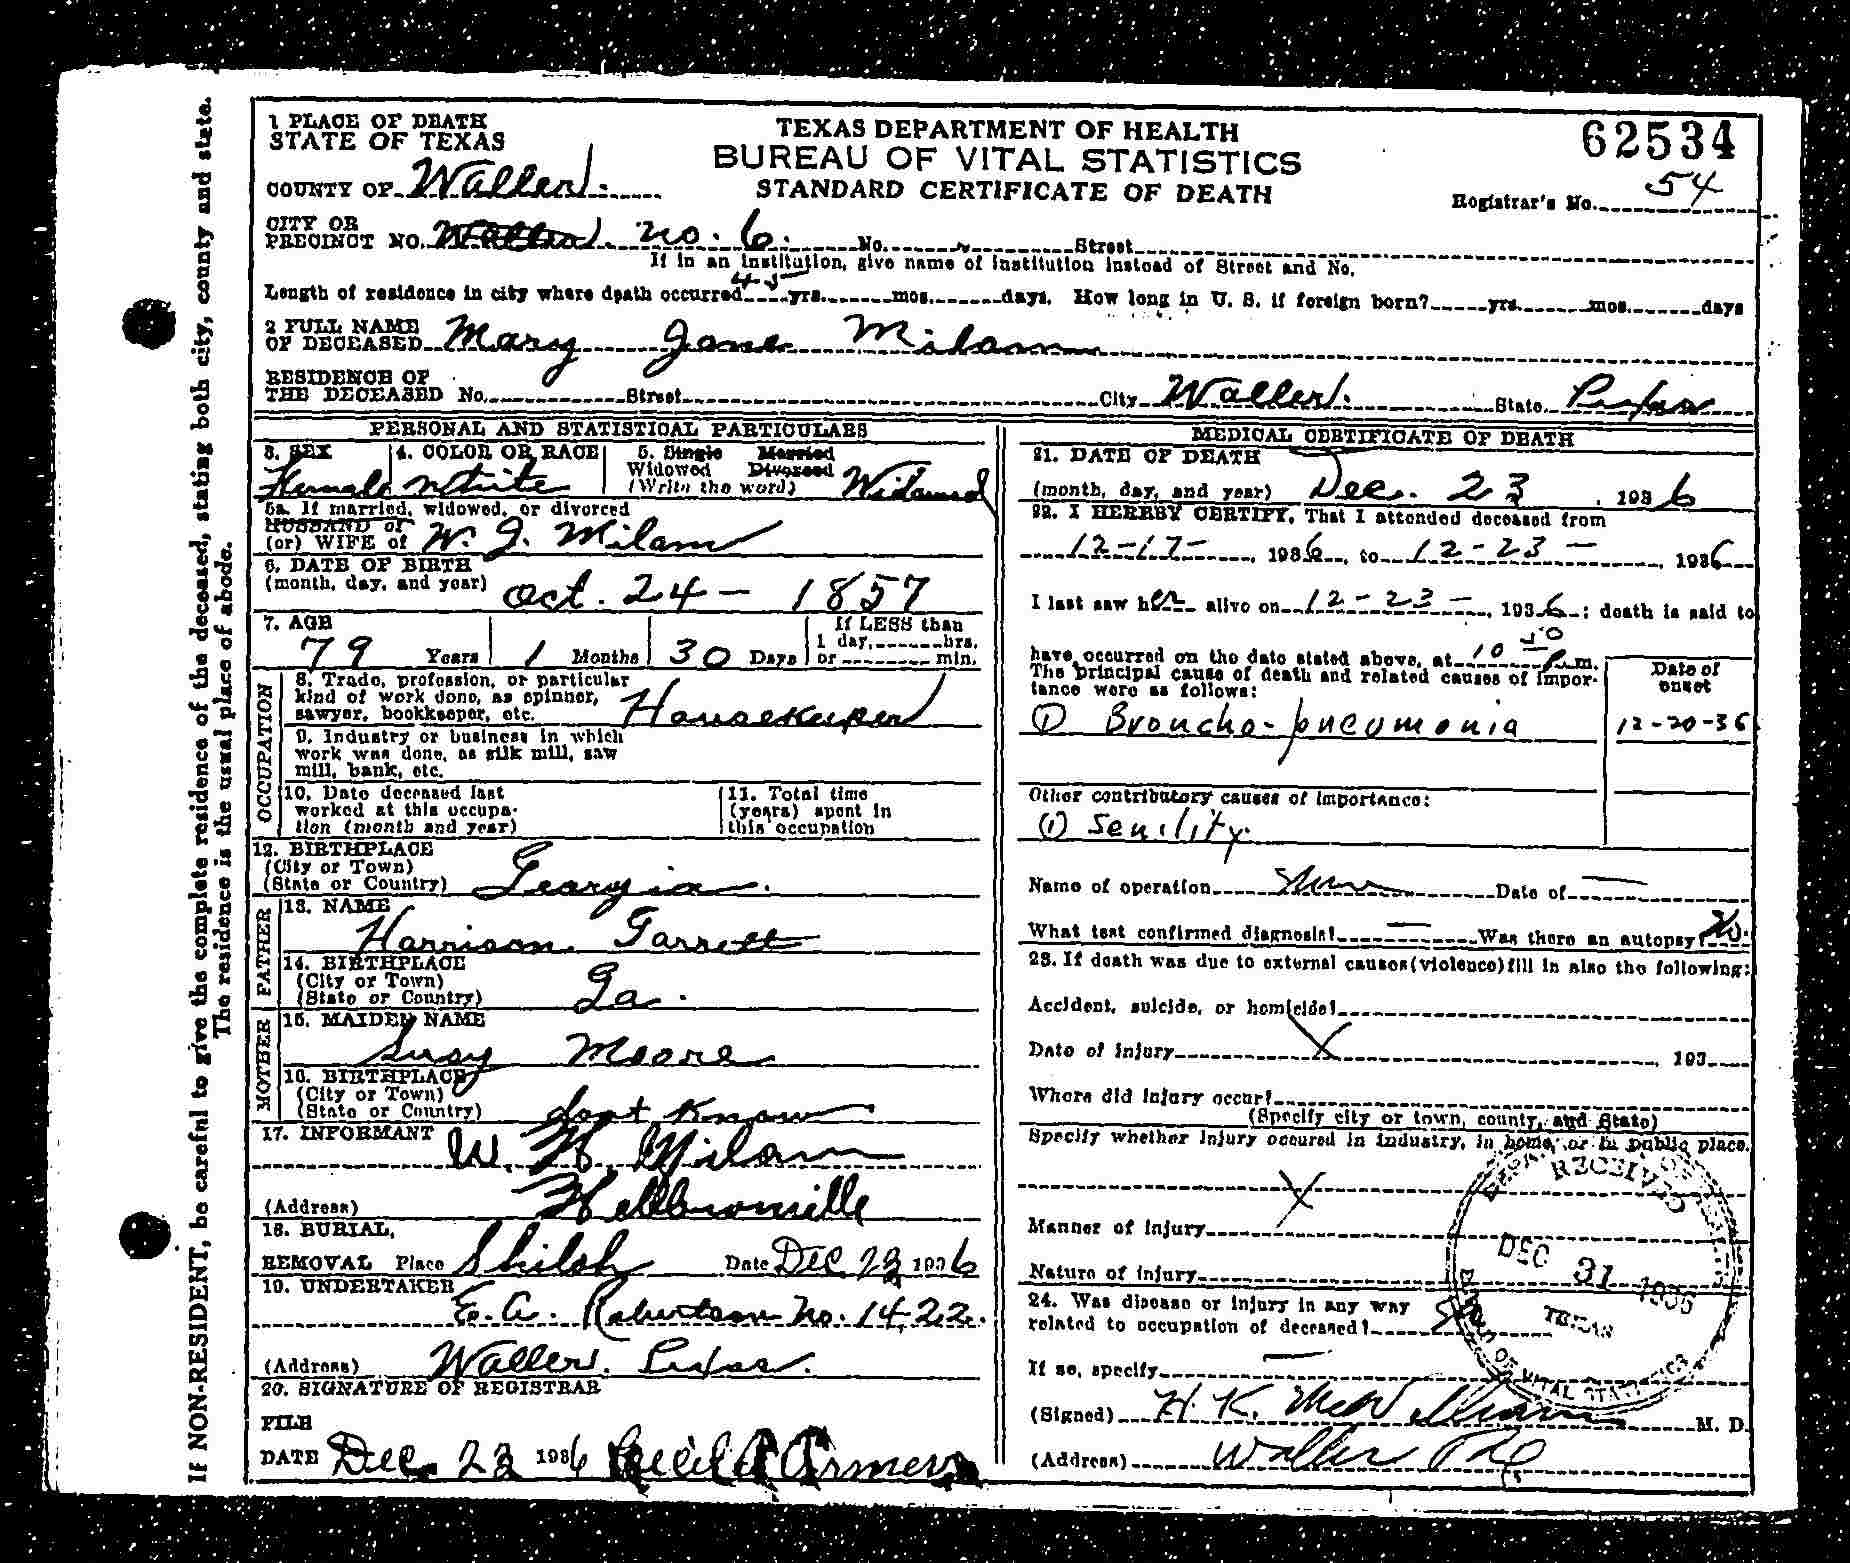 If NON-RESIDENT, be careful to give the complete residence of the deceased, stating both city, county and state.
The residence is the usual place of abode.
1 PLACE OF DEATH
STATE OF TEXAS
COUNTY OF Waller.
TEXAS DEPARTMENT OF HEALTH
BUREAU OF VITAL STATISTICS
STANDARD CERTIFICATE OF DEATH
62534
Registrar's No. 54
CITY OR
PRECINCT NO. Waller. no. 6. No. Street
If in an institution, give name of institution instead of Street and No.
Length of residence in city where death occurred 45 yrs. mos. days. How long in U. S. if foreign born? yrs. mos. days
2 FULL NAME
OF DECEASED Mary Jane Milam
RESIDENCE OF
THE DECEASED No. Street City Waller. State Texas
PERSONAL AND STATISTICAL PARTICULARS
3. SEX
Female
4. COLOR OR RACE
White
5. Single Married
Widowed Divorced
(Write the word) Widowed
5a. If married, widowed, or divorced
HUSBAND of
(or) WIFE of W. J. Milam
6. DATE OF BIRTH
(month, day, and year) Oct. 24 - 1857
7. AGE
79 Years 1 Months 30 Days
If LESS than
1 day, hrs.
or min.
OCCUPATION
8. Trade, profession, or particular
kind of work done, as spinner,
sawyer, bookkeeper, etc. Housekeeper
9. Industry or business in which
work was done, as silk mill, saw
mill, bank, etc.
10. Date deceased last
worked at this occupa-
tion (month and year)
11. Total time
(years) spent in
this occupation
12. BIRTHPLACE
(City or Town)
(State or Country) Georgia.
FATHER
13. NAME
Harrison Garrett
14. BIRTHPLACE
(City or Town)
(State or Country) Ga.
MOTHER
15. MAIDEN NAME
Susy Moore
16. BIRTHPLACE
(City or Town)
(State or Country) dont Know
17. INFORMANT
W. H. Milam
(Address)
18. BURIAL,
REMOVAL Place Shiloh Date Dec 23 1936
19. UNDERTAKER
E. A. Robertson No. 1422.
(Address) Waller. Texas.
20. SIGNATURE OF REGISTRAR
FILE
DATE Dec. 23 1936
MEDICAL CERTIFICATE OF DEATH
21. DATE OF DEATH
(month, day, and year) Dec. 23, 1936
22. I HEREBY CERTIFY, That I attended deceased from
12-17-, 1936, to 12-23-, 1936
I last saw her alive on 12-23-, 1936; death is said to
have occurred on the date stated above, at 10 50 P.m.
The principal cause of death and related causes of impor-
tance were as follows:
Date of
onset
(1) Broncho-pneumonia 12-20-36
Other contributory causes of importance:
(1) Senility.
Name of operation None Date of —
What test confirmed diagnosis? — Was there an autopsy? No.
23. If death was due to external causes (violence) fill in also the following:
Accident, suicide, or homicide?
Date of injury X, 193
Where did injury occur?
(Specify city or town, county, and State)
Specify whether injury occured in industry, in home, or in public place.
X
Manner of injury
Nature of injury
24. Was disease or injury in any way
related to occupation of deceased?
If so, specify —
(Signed) H. K. McWilliams M. D.
(Address) Waller
RECEIVED
DEC 31 1936
TEXAS
OF VITAL STATISTICS